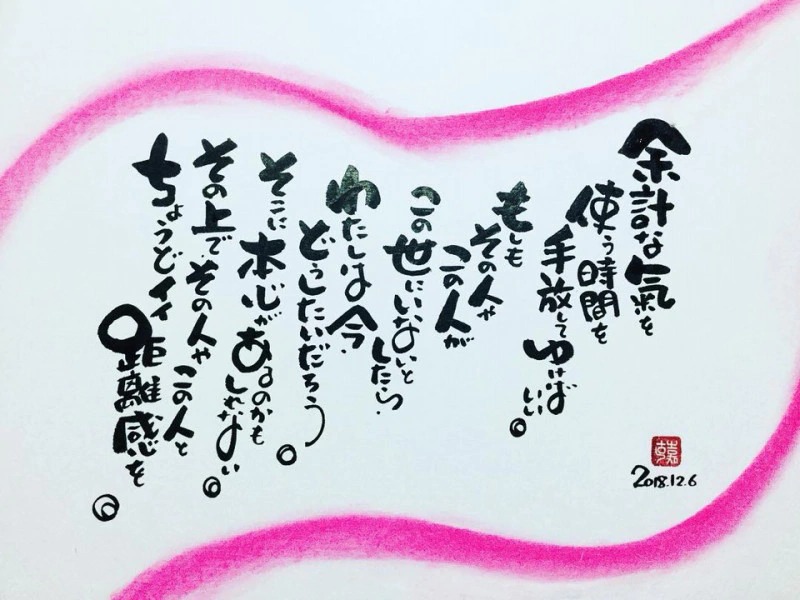 余計な氣を
使う時間を
手放して
ゆけばいい。
もしも
その人や
この人が
この世にいないと
したら、
わたしは今、
どうしたいだろう。
そこに
本心が
あるのかも
しれない。
その上で
その人や
この人と
ちょうどイイ
距離感を。
2018.12.6